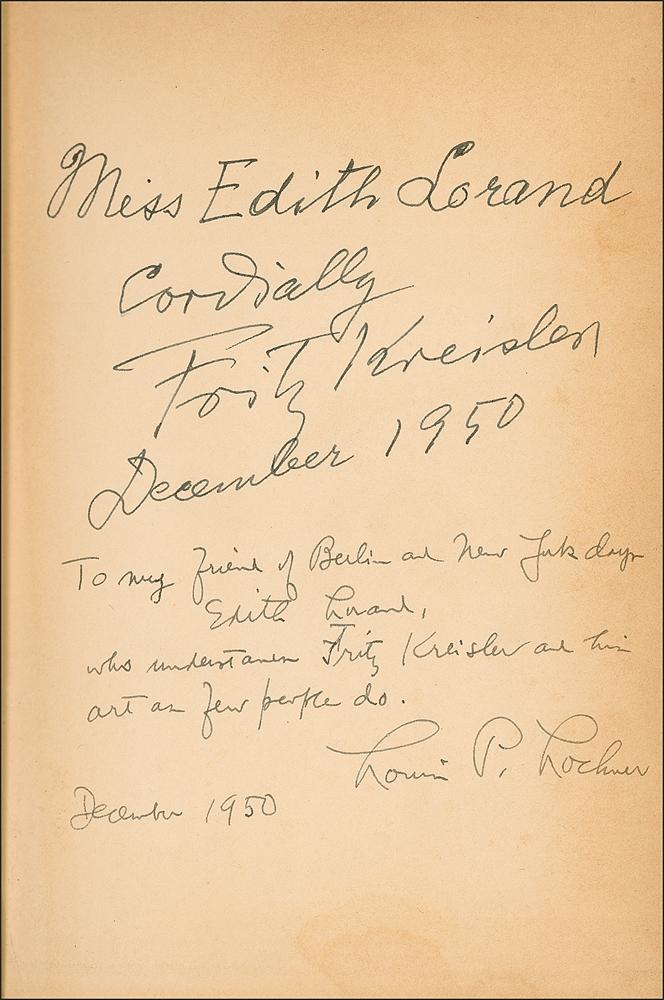 Miss Edith Lorand
Cordially
Fritz Kreisler
December 1950
To my friend of Berlin and New York days
Edith Lorand,
who understands Fritz Kreisler and his
art as few people do.
Louis P. Lochner
December 1950